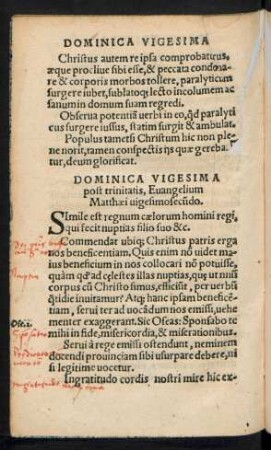 DOMINICA VIGESIMA
Christus autem re ipsa comprobaturus,
æque procliue sibi esse, & peccata condona-
re & corporis morbos tollere, paralyticum
surgere iubet, sublatoq; lecto incolumem ac
sanum in domum suam regredi.
Obserua potentiã uerbi in eo, qd paralyti
cus surgere iussus, statim surgit & ambulat.
Populus tametsi Christum hic non ple
ne norit, tamen conspectis ijs quæ gereba
tur, deum glorificat.
DOMINICA VIGESIMA
post trinitatis, Euangelium
Matthæi uigesimosecũdo.
SImile est regnum cælorum homini regi,
qui fecit nuptias filio suo &c.
Commendat ubiq; Christus patris erga
nos beneficentiam. Quis enim nõ uidet ma
ius beneficium in nos collocari nõ potuisse,
quàm qd ad celestes illas nuptias, quę ut nuius
corpus cũ Christo simus, effiscit, per uerbũ
quotidie inuitamur? Atq; hanc ipsam benefi
tiam, serui ter ad uocãdum nos emissi, uehe
menter exaggerant. Sic Oseas: Sponsabo te
Ose. 2.
mihi in fide, misericordia, & miserationibus.
Serui à rege emissi ostendunt, neminem
docendi prouinciam sibi usurpare debere, ni
si legitime uocetur.
Ingratitudo cordis nostri mire hic ex-